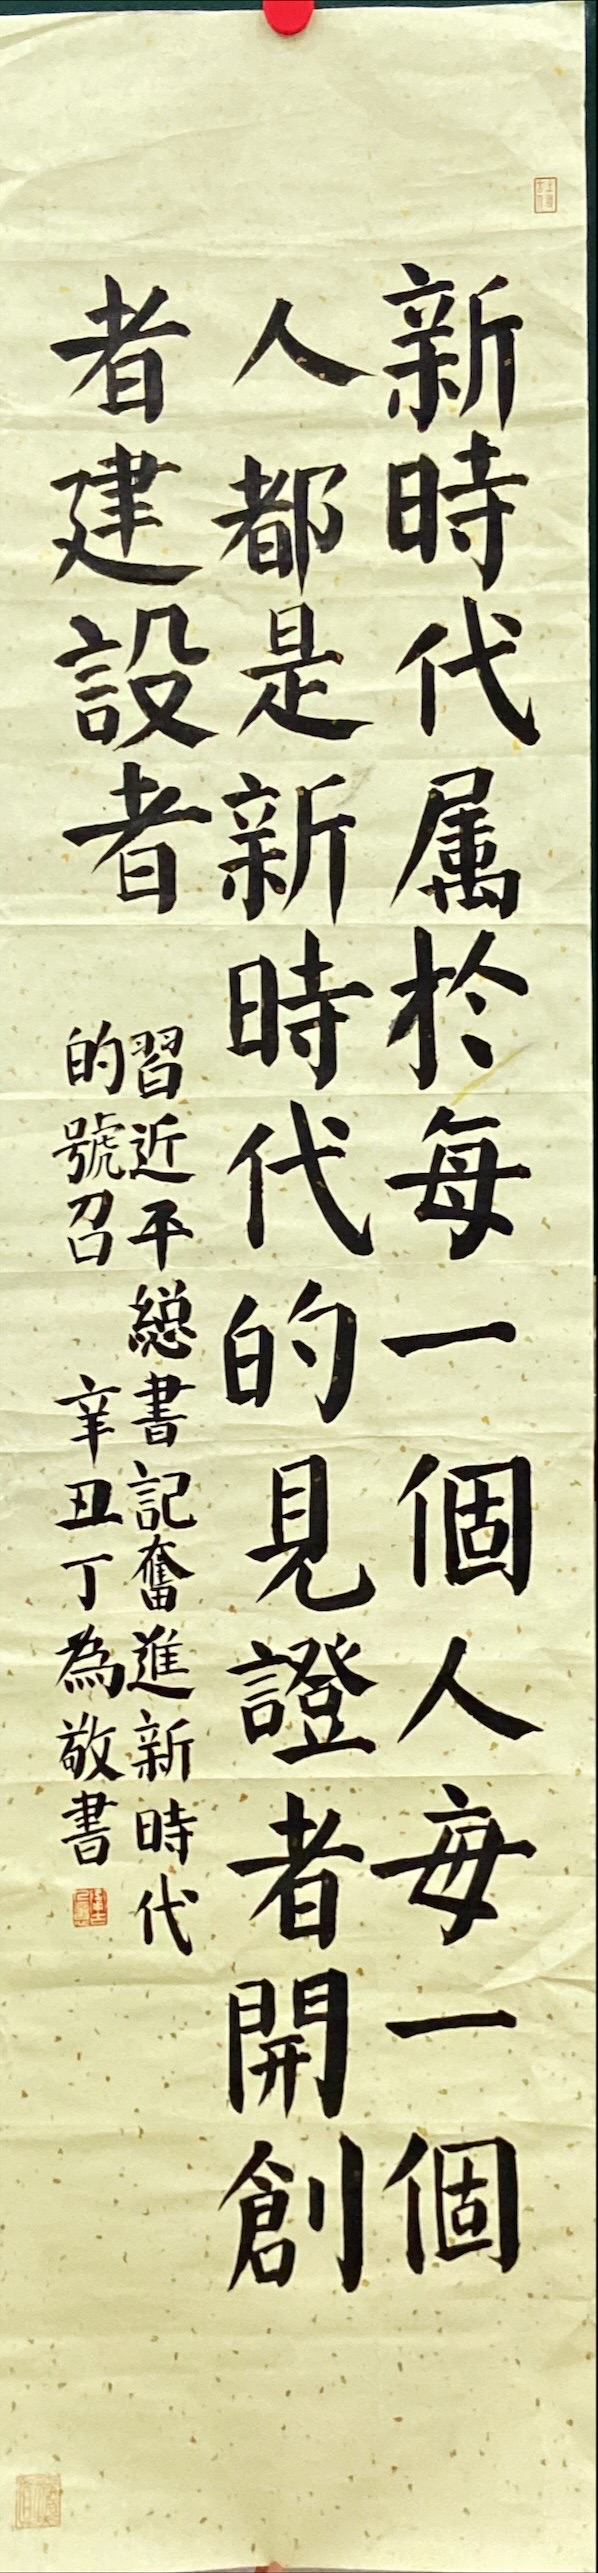 新時代属於每一個人每一個
人都是新時代的見證者開創
者建設者
習近平總書記奮進新時代
的號召 辛丑丁為敬書